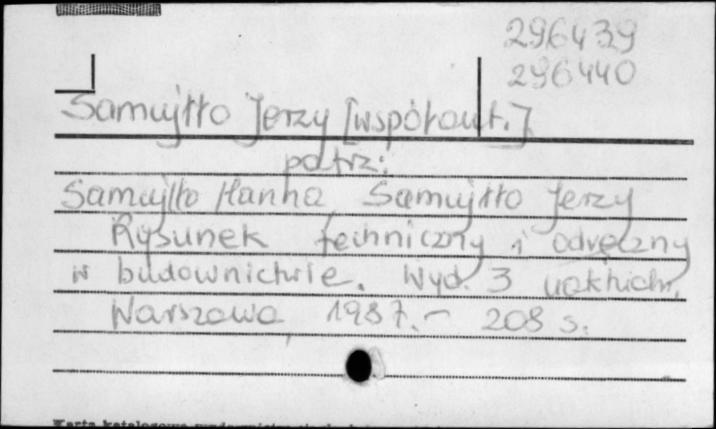 296439
296440
Samujłło Jerzy [współaut.]
patrz:
Samujłło Hanna, Samujłło Jerzy
Rysunek techniczny i odręczny
w budownictwie. Wyd. 3 uaktualn.
Warszawa, 1987.- 208 s.
Karta katalogowa